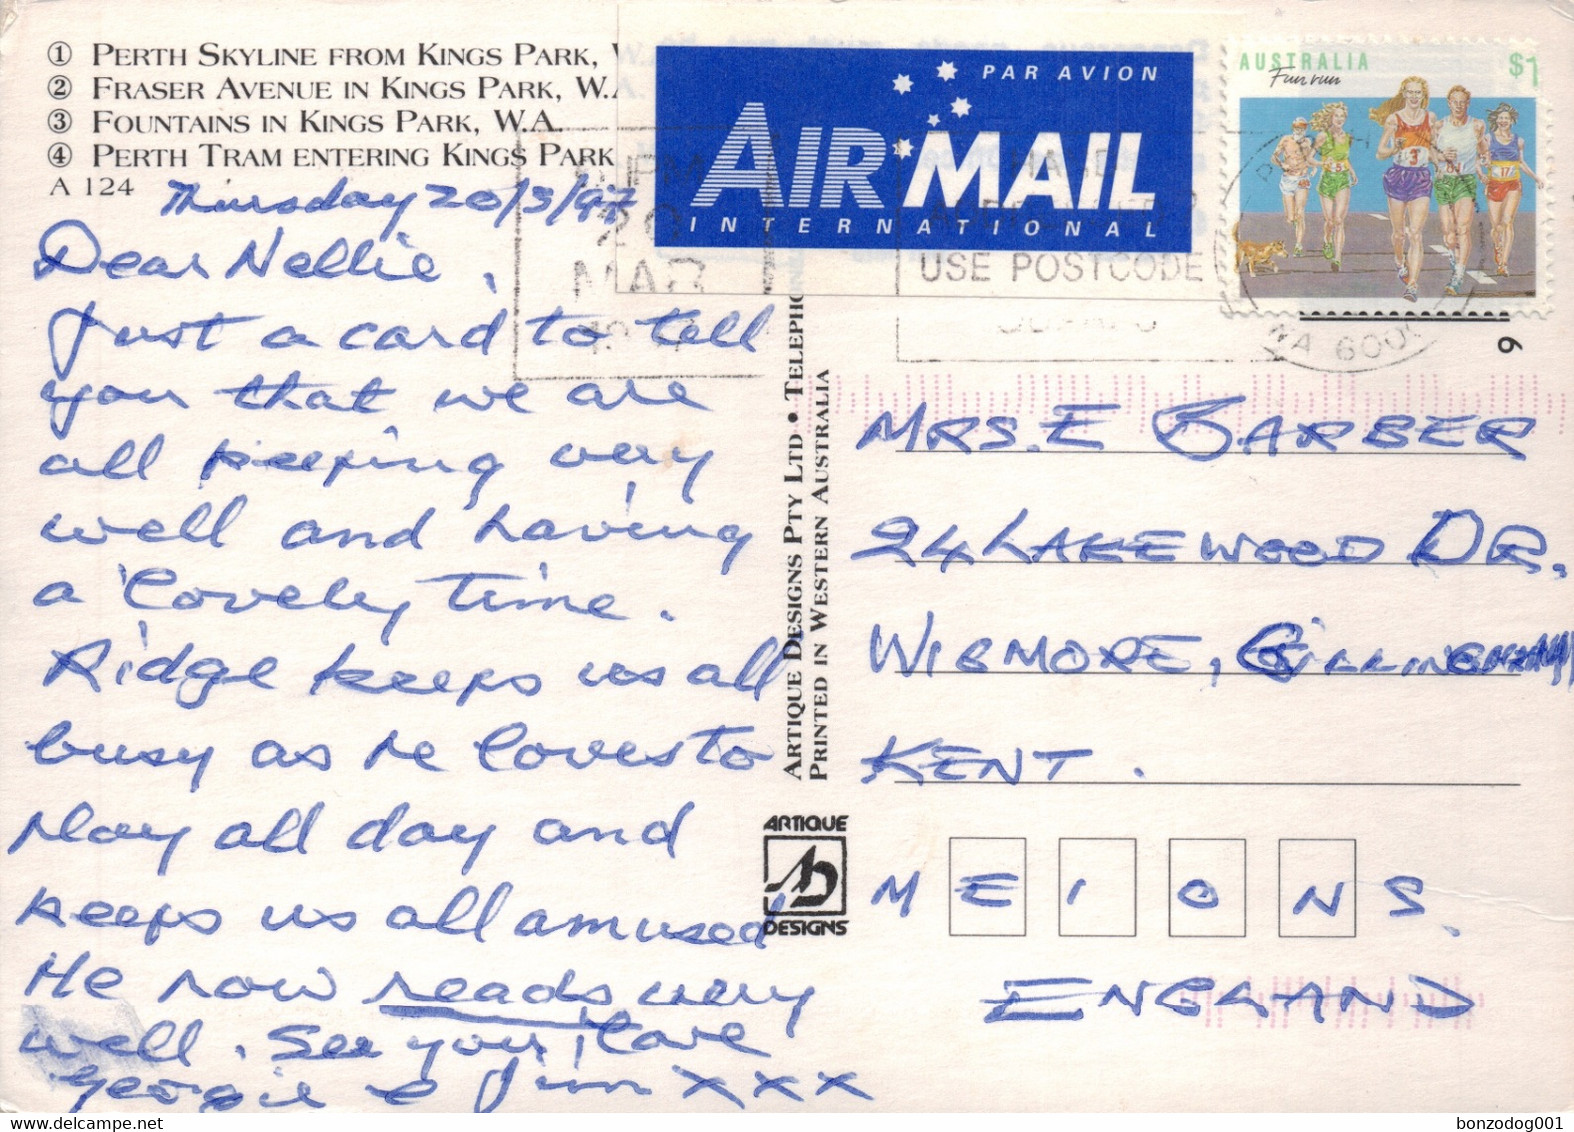 ① PERTH SKYLINE FROM KINGS PARK,
② FRASER AVENUE IN KINGS PARK, W.A.
③ FOUNTAINS IN KINGS PARK, W.A.
④ PERTH TRAM ENTERING KINGS PARK
A 124
PAR AVION
AIR MAIL
INTERNATIONAL
AUSTRALIA
Fun run
$1
MAR
USE POSTCODE
WA 600
9
Thursday 20/3/97
Dear Nellie,
Just a card to tell
you that we are
all keeping very
well and having
a lovely time.
Ridge keeps us all
busy as he loves to
play all day and
keeps us all amused
He now reads very
well. See you, love
Georgie & Jim xxx
ARTIQUE DESIGNS PTY LTD •
PRINTED IN WESTERN AUSTRALIA
ARTIQUE
DESIGNS
MRS. E BARBER
24 LAKEWOOD DR.
WIGMORE, GILLINGHAM
KENT.
ME8 0NS.
ENGLAND
bonzodog001